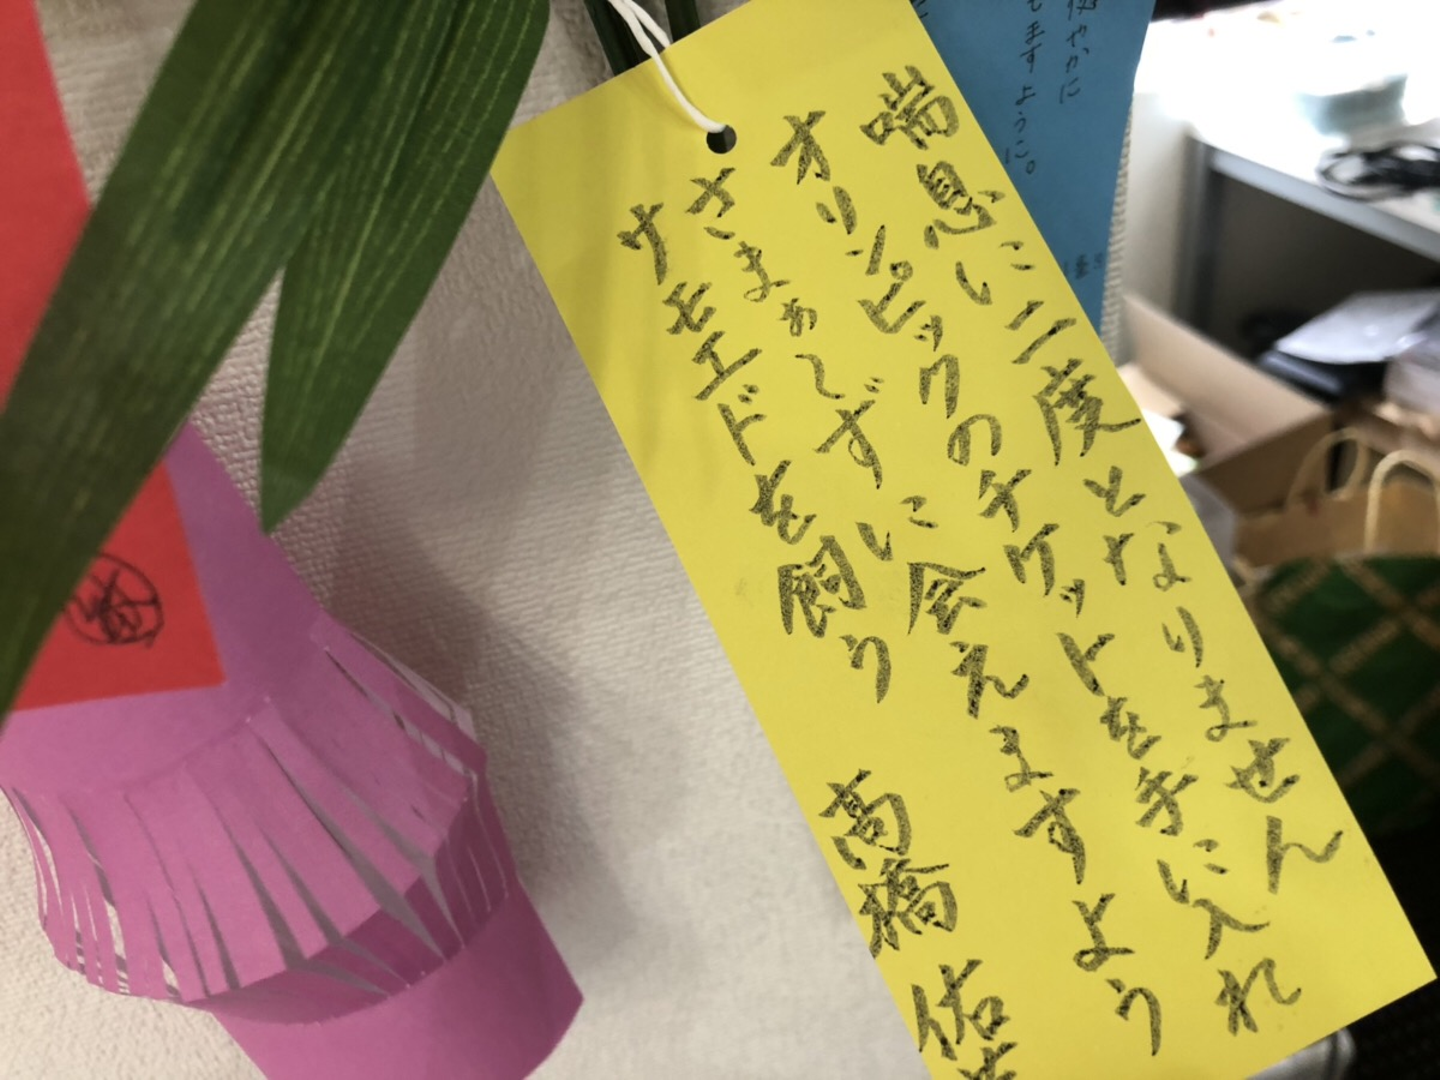 喘息に二度となりません
オリンピックのチケットを手に入れ
さまぁ〜ずに会えますよう
サモエドを飼う
高橋 佑
やかに
ますように。